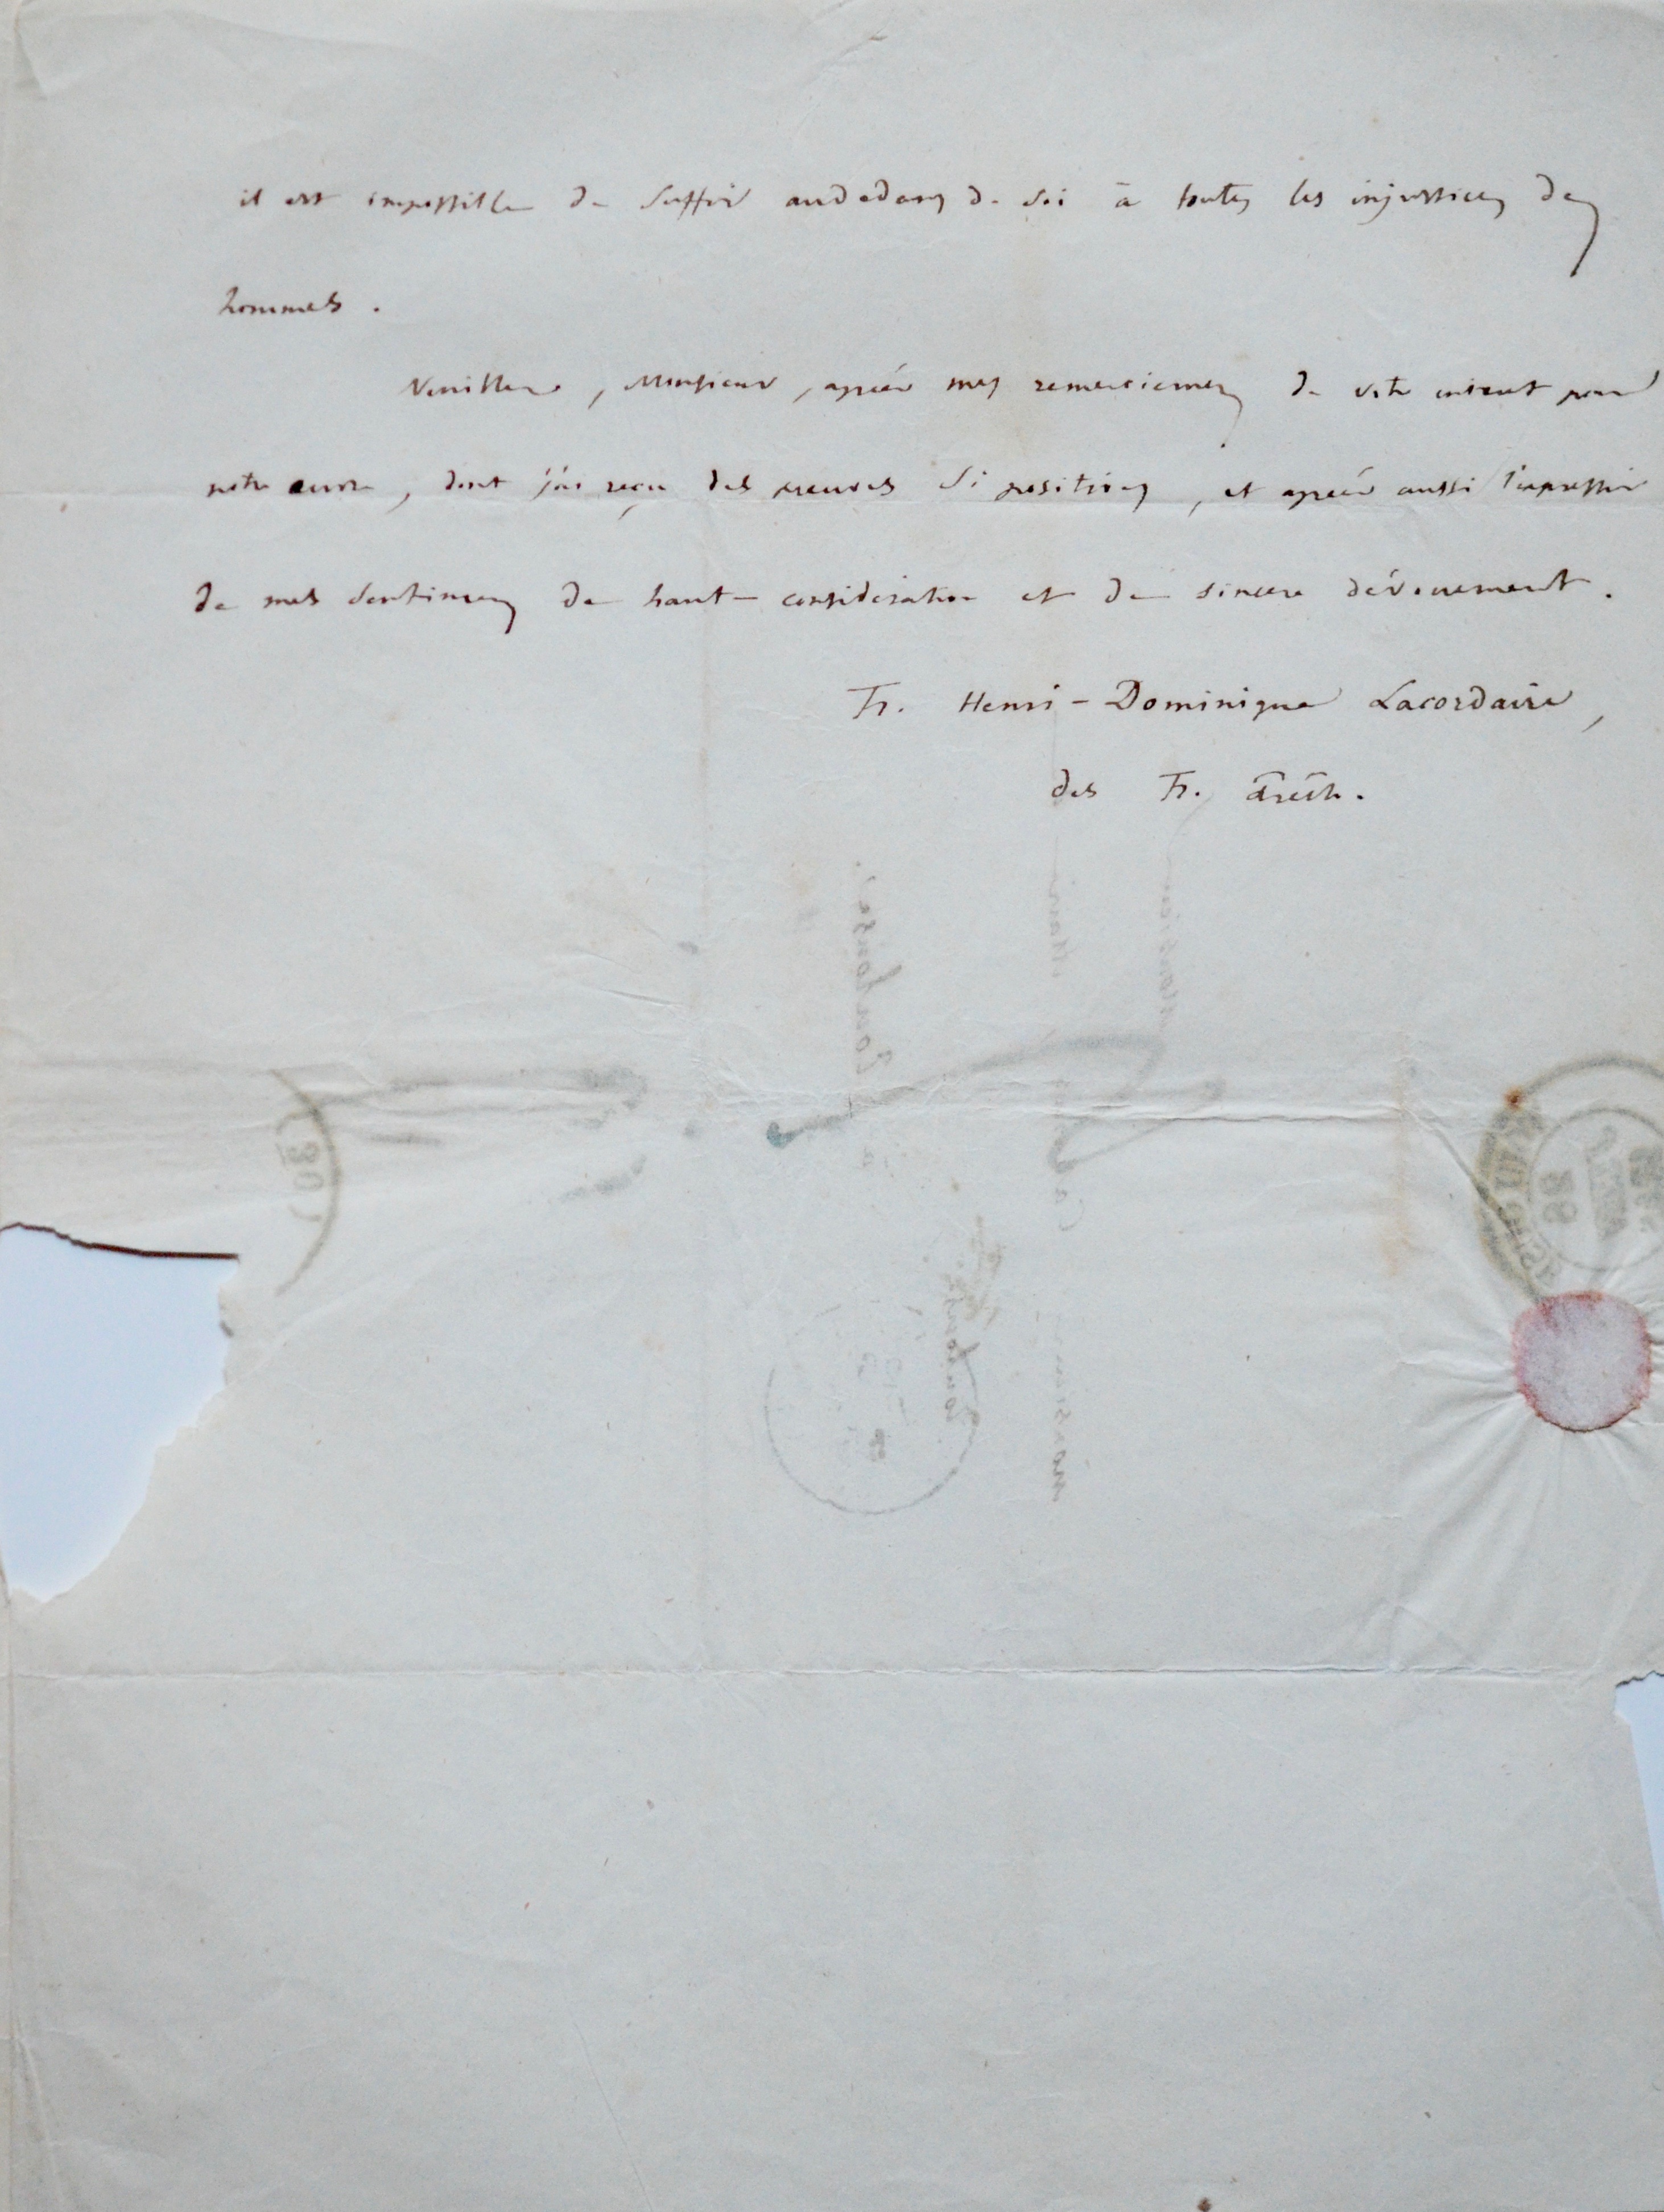 il est impossible de suffire audedans de soi à toutes les injustices des
hommes.
Veuillez, Monsieur, agréer mes remerciemens de votre intérêt pour
notre œuvre, dont j'ai reçu des preuves si positives, et agréer aussi l'expression
de mes sentimens de haute considération et de sincère dévouement.
Fr. Henri-Dominique Lacordaire,
des Fr. Prêch.
Toulouse.
Toulouse
(30)
28